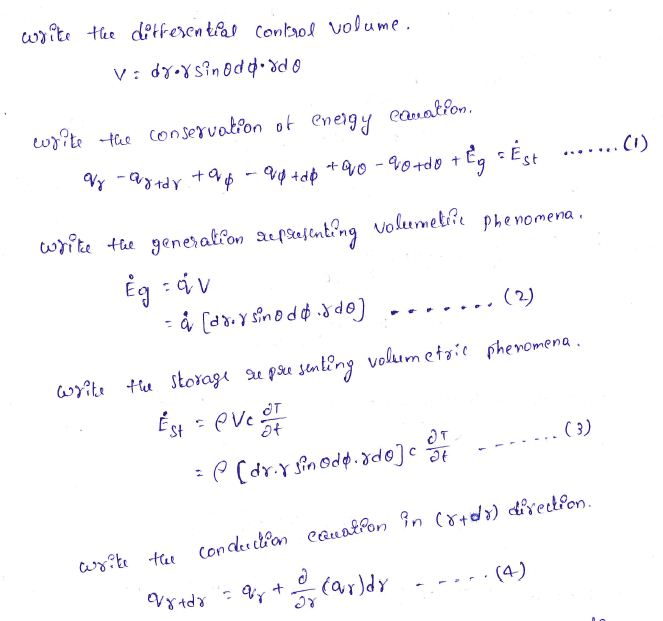 write the differential control volume.
V = dr·r sinθdϕ·rdθ
write the conservation of energy equation.
qr - qr+dr + qϕ - qϕ+dϕ + qθ - qθ+dθ + Ėg = Ėst ....... (1)
write the generation representing volumetric phenomena.
Ėg = q̇ V
= q̇ [dr.r sinθdϕ.rdθ] ....... (2)
write the storage representing volumetric phenomena.
Ėst = ρVc ∂T/∂t
= ρ [dr.r sinθdϕ.rdθ] c ∂T/∂t ....... (3)
write the conduction equation in (r+dr) direction.
qr+dr = qr + ∂/∂r (qr)dr ..... (4)